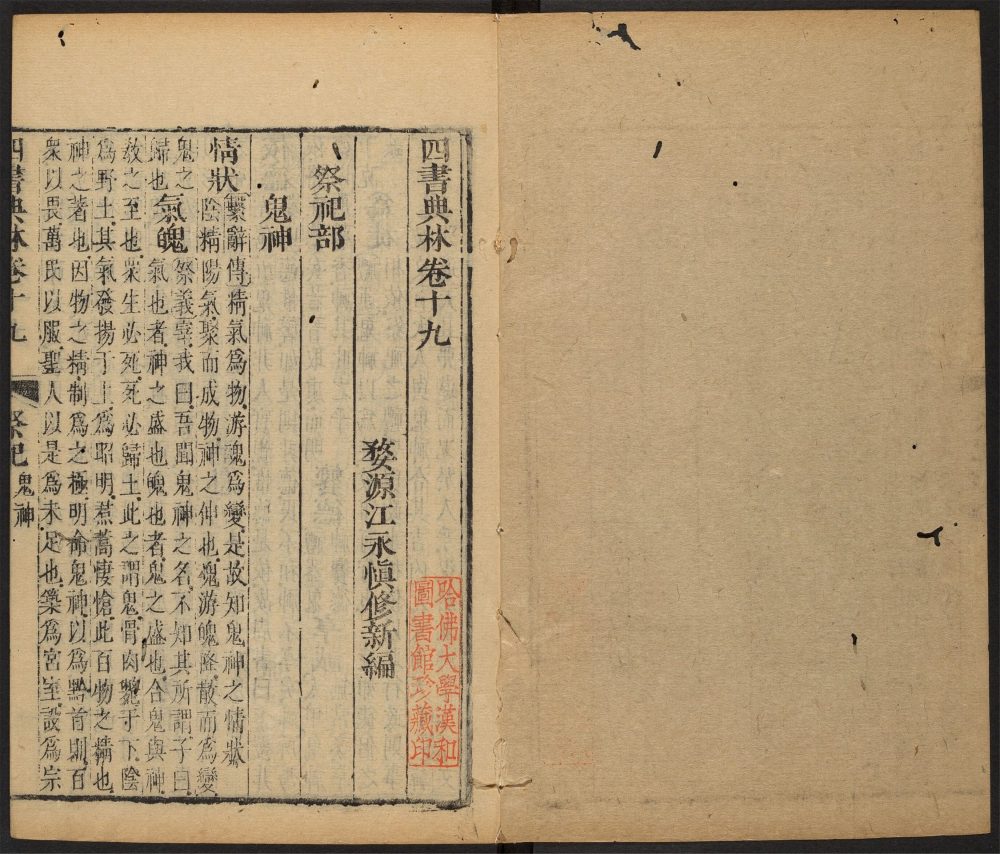 四書典林卷十九
婺源江永慎修新編
哈佛大學漢和
圖書館珍藏印
祭祀部
鬼神
情狀繫辭傳精氣為物游魂為變是故知鬼神之情狀
陰精陽氣聚而成物神之伸也魂游魄降散而為變
鬼之歸也氣魄祭義宰我曰吾聞鬼神之名不知其所謂子曰
氣也者神之盛也魄也者鬼之盛也合鬼與神
敎之至也衆生必死死必歸土此之謂鬼骨肉斃于下陰
為野土其氣發揚于上為昭明焄蒿悽愴此百物之精也
神之著也因物之精制為之極明命鬼神以為黔首則百
衆以畏萬民以服聖人以是為未足也築為宮室設為宗
四書典林卷十九 祭祀 鬼神